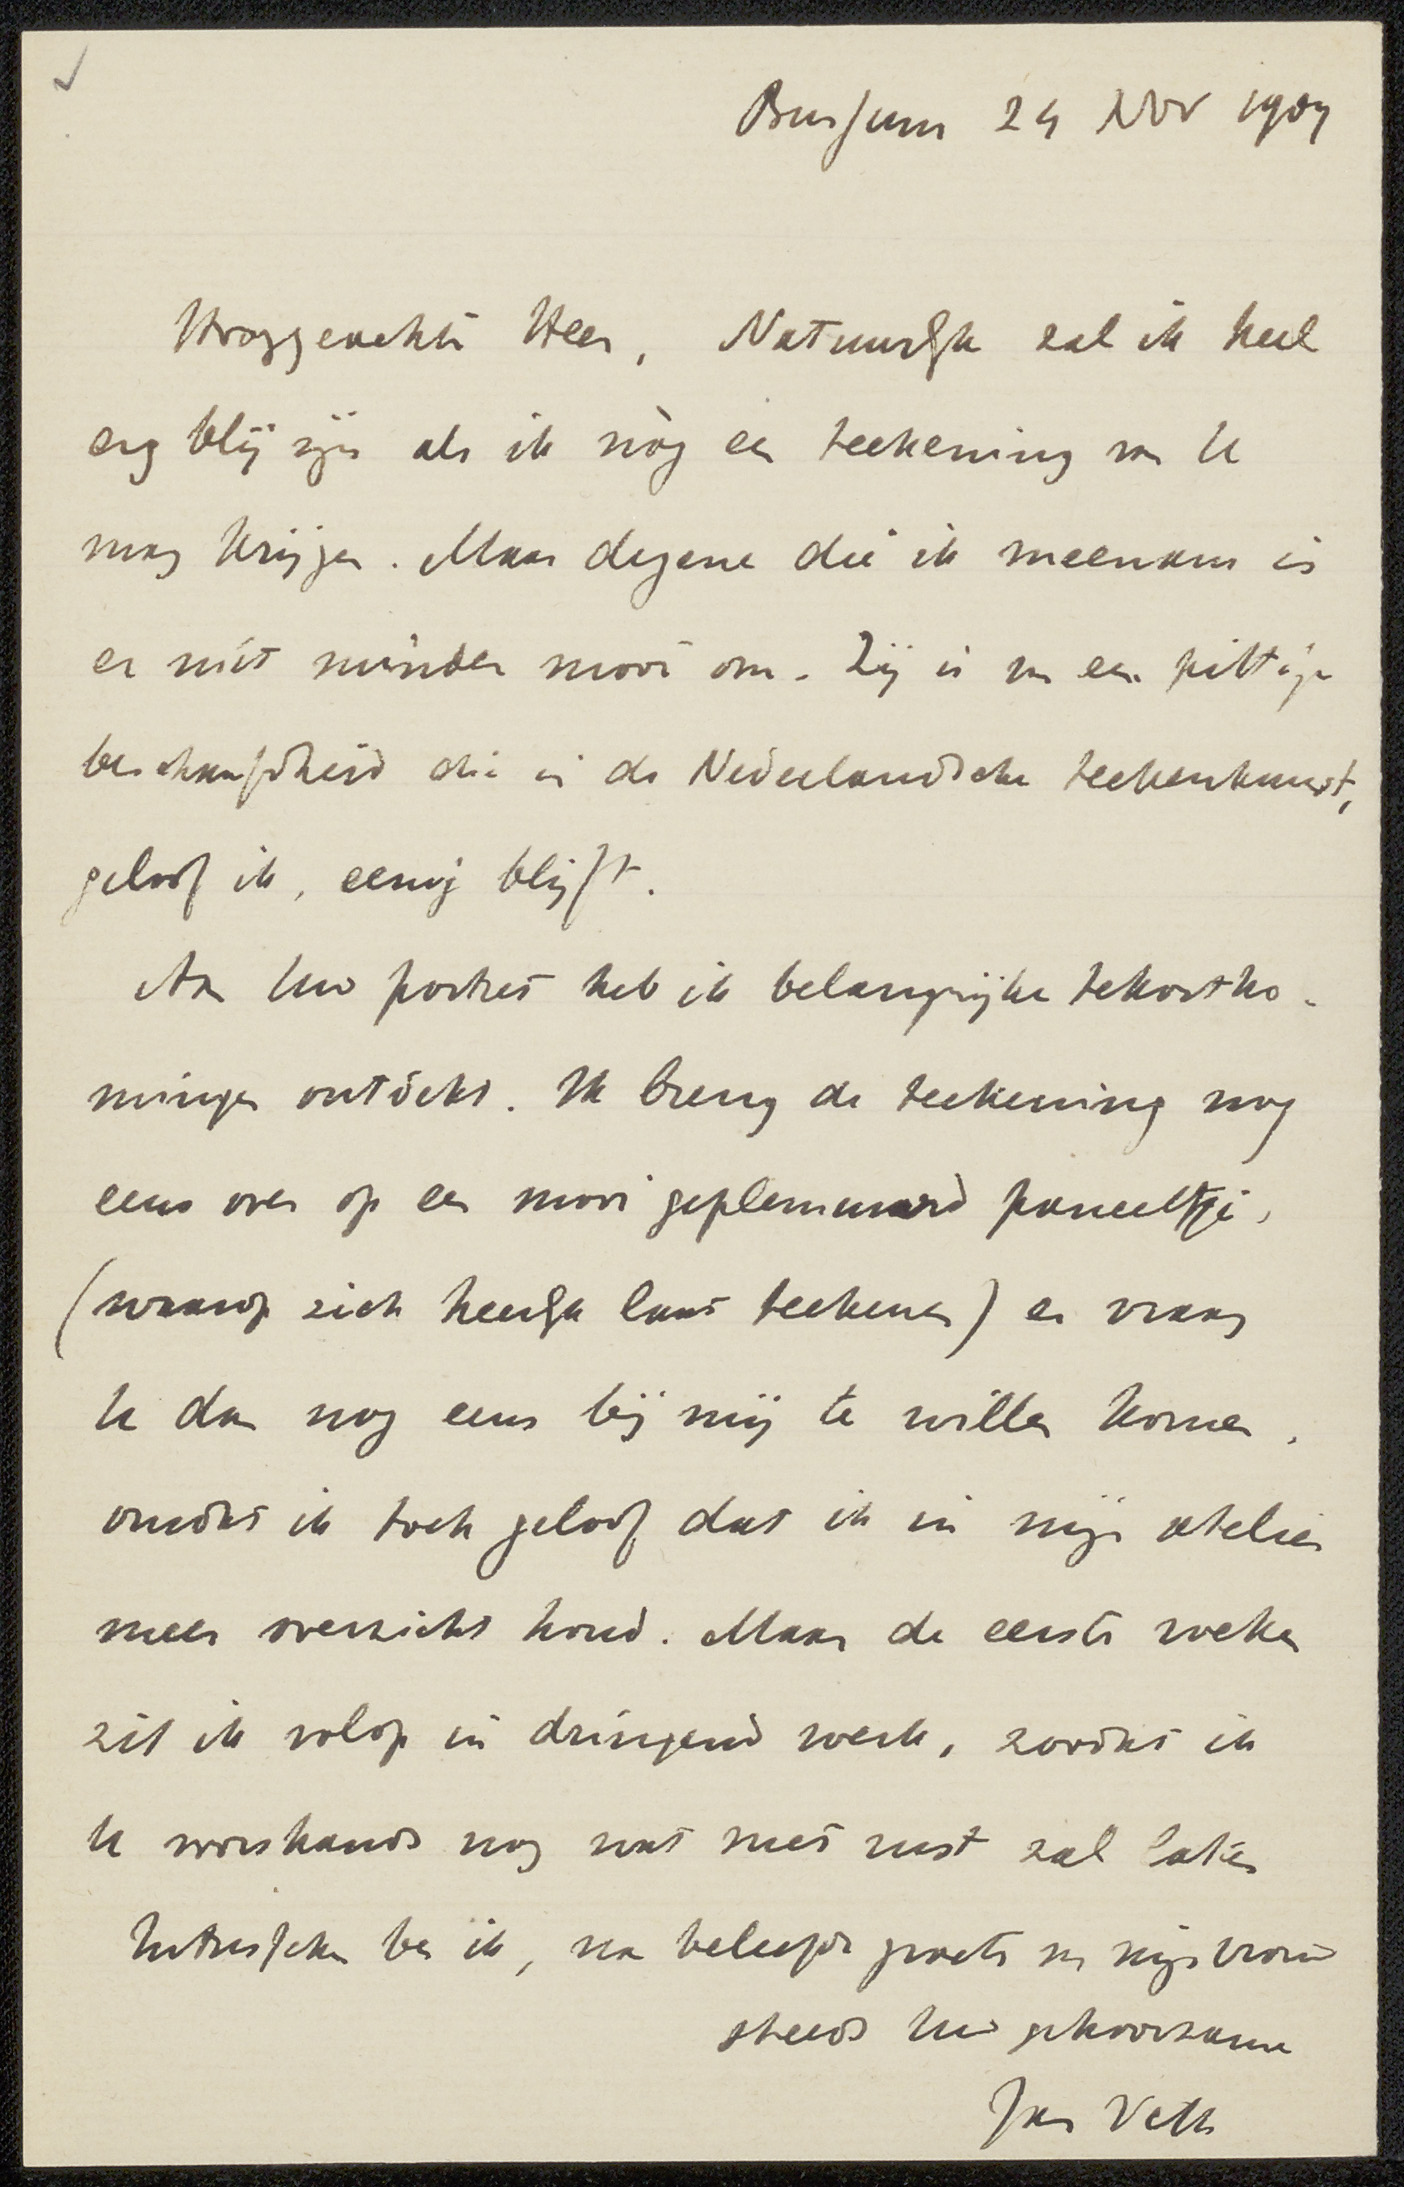 Bussum 24 Nov 1904
Hooggeachte Heer, Natuurlijk zal ik heel
erg blij zijn als ik nòg een teekening van U
mag krijgen. Maar degene die ik meenam is
er niet minder mooi om. Zij is van een pittige
beschaafdheid die in de Nederlandsche teekenkunst,
geloof ik, eenig blijft.
Aan Uw portret heb ik belangrijke tekortko-
mingen ontdekt. Ik breng de teekening nog
eens over op een mooi geplemuurd paneeltje,
(waarop zich heerlijk laat teekenen) en vraag
U dan nog eens bij mij te willen komen,
omdat ik toch geloof dat ik in mijn atelier
meer overzicht houd. Maar de eerste weken
zit ik volop in dringend werk, zoodat ik
U voorshands nog wat met rust zal laten
Intusschen ben ik, na beleefde groete van mijn vrouw
steeds Uw gehoorzame
Jan Veth